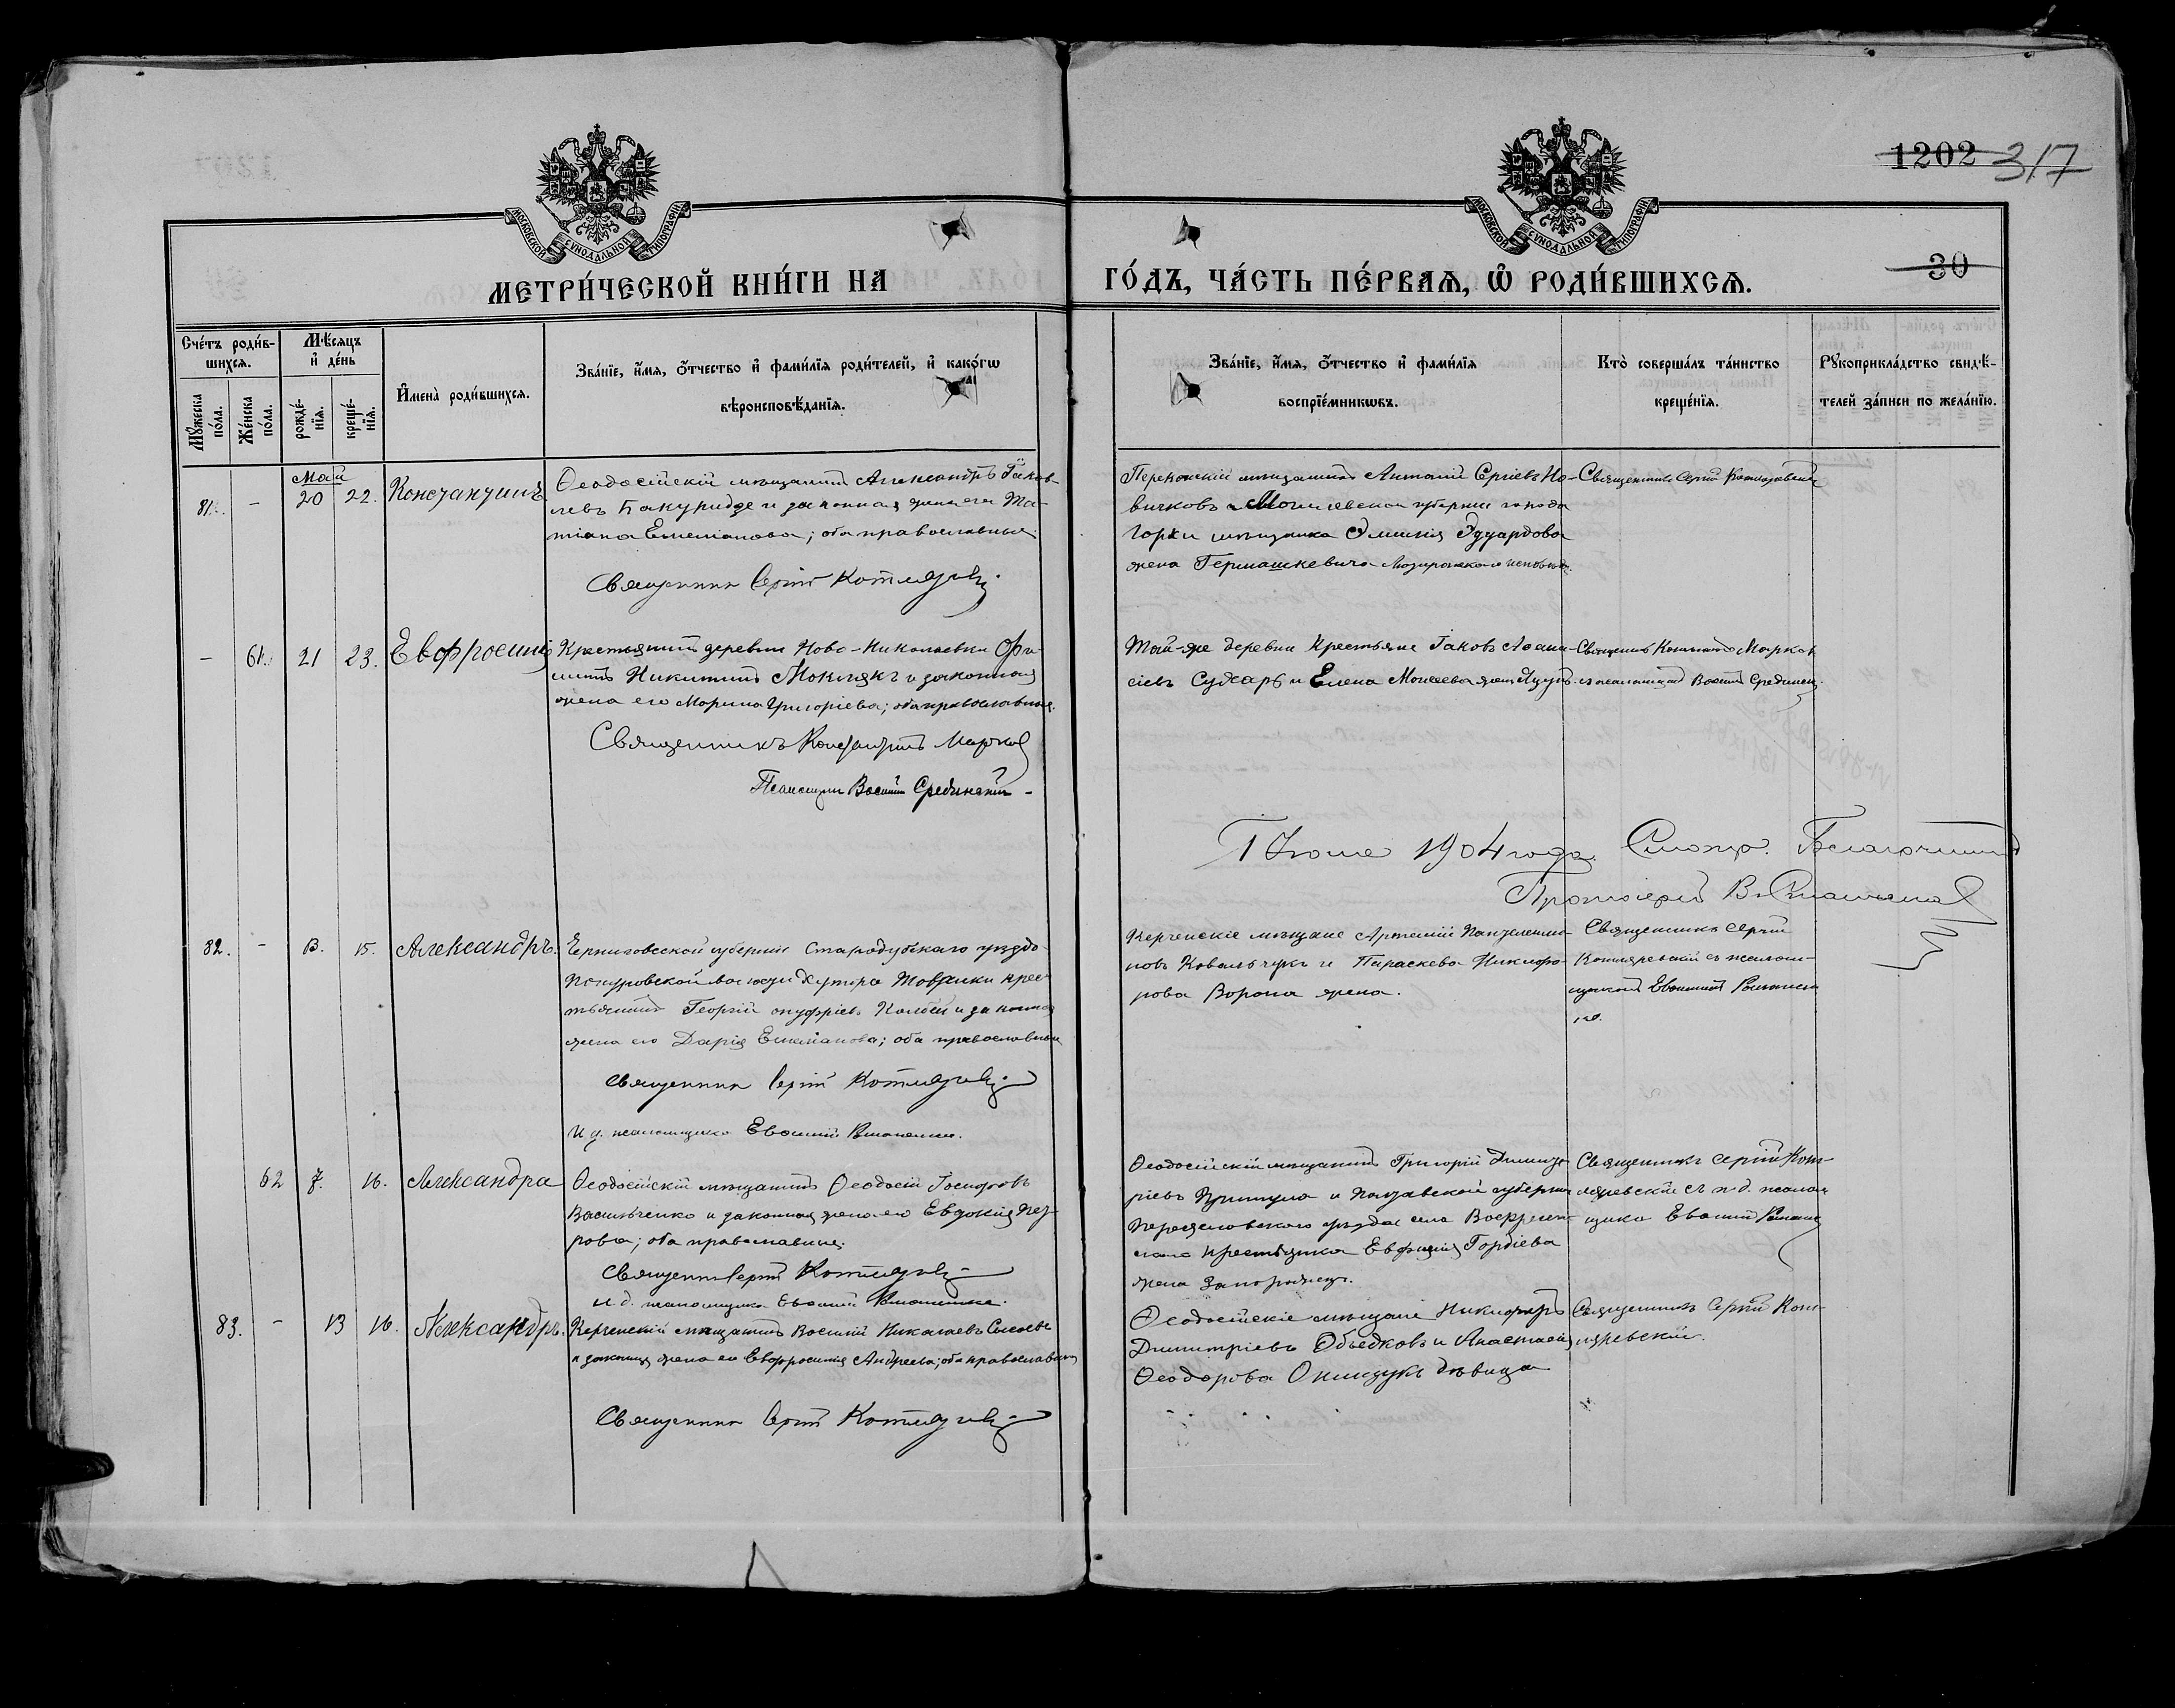 1202 317
МОСКОВСКОЙ СѴНОДАЛЬНОЙ ТИПОГРАФІИ
МОСКОВСКОЙ СѴНОДАЛЬНОЙ ТИПОГРАФІИ
МЕТРИ́ЧЕСКОЙ КНИ́ГИ НА ГО́ДЪ, ЧА́СТЬ ПЕ́РВАѦ, Ѡ҆ РОДИ́ВШИХСѦ.
30
Сче́тъ роди́в-
шихсѧ.
Мꙋ́жеска по́ла.
Же́нска по́ла.
Мѣ́сяцъ
и҆ де́нь
рожде́-
нїѧ.
креще́-
нїѧ.
И҆мена̀ роди́вшихсѧ.
Зва́нїе, и҆́мѧ, ѻ҆́тчество и҆ фами́лїѧ роди́телей, и҆ како́гѡ
вѣроисповѣ́данїѧ.
Зва́нїе, и҆́мѧ, ѻ҆́тчество и҆ фами́лїѧ
воспрїе́мникѡвъ.
Кто̀ соверша́лъ та́инство
креще́нїѧ.
Рꙋкоприкла́дство свидѣ́-
телей за́писи по жела́нїю.
Май
81. - 20 22. Константинъ
Ѳеодосійскій мѣщанинъ Александръ Іаков-
левъ Бакуридзе и законная жена его Та-
тіана Емеліанова; оба православные.
Священникъ Сергій Котляревскій
Перекопскій мѣщанинъ Антоній Сергіевъ Но-
вичковъ и Могилевской губерніи города
Горки мѣщанка Эмилія Эдуардова
жена Гермашкевича
Священникъ Сергій Котляревскій
- 61. 21 23. Евфросинія
Крестьянинъ деревни Ново-Николаевки
Никитинъ и законная
жена его Марина Григоріева; оба православные.
Священникъ Константинъ Марковъ
Псаломщикъ Василій Срединскій
Той-же деревни крестьяне Іаковъ Аѳана-
сіевъ Сухарь и Елена Моисеева жена
Священникъ Константинъ Марковъ
съ псаломщикомъ Василіемъ Срединскимъ
1 Іюня 1904 года. Смотр. Благочинный
Протоіерей В.
82. - 13. 15. Александръ.
Черниговской губерніи Стародубскаго уѣзда
волости хутора крес-
тьянинъ Георгій Онуфріевъ и законная
жена его Дарія Емеліанова; оба православные
Священникъ Сергій Котляревскій
И д. псаломщика Евѳимій Романенко.
Керченскіе мѣщане Артемій Пантелеимо-
новъ Ковальчукъ и Параскева Никифо-
рова Ворона жена.
Священникъ Сергій
Котляревскій съ псалом-
щикомъ Евѳиміемъ Романен-
ко.
62 7. 16. Александра
Ѳеодосійскій мѣщанинъ Ѳеодосій Іосифовъ
Василѣченко и законная жена его Евдокія Пет-
рова; оба православные.
Священникъ Сергій Котляревскій
И д. псаломщика Евѳимій Романенко.
Ѳеодосійскій мѣщанинъ Григорій Димит-
ріевъ и Полтавской губерніи
Переяславскаго уѣзда села Воскресен-
скаго крестьянка Евфимія Гордіева
жена Запорожецъ.
Священникъ Сергій Кот-
ляревскій съ и д. псалом-
щика Евѳимій Романенко
83. - 13 16. Александръ.
Керченскій мѣщанинъ Василій Николаевъ
и законная жена его Евфросинія Андреева; оба православные
Священникъ Сергій Котляревскій
Ѳеодосійскіе мѣщане Никифоръ
Димитріевъ Объедковъ и Анастасія
Ѳеодорова дѣвица
Священникъ Сергій Кот-
ляревскій.